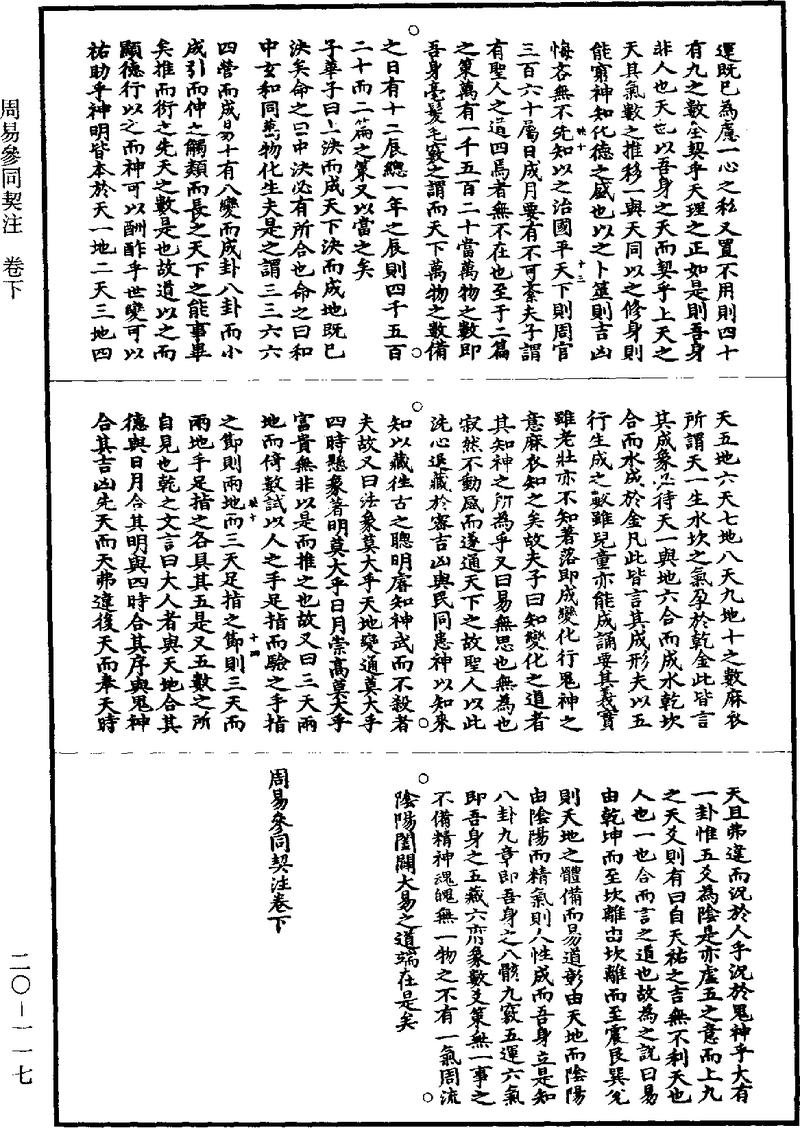 周易參同契注　卷下
二〇—一一七
運既已為慮一心之私又置不用則四十
有九之數全契乎天理之正如是則吾身
非人也天也以吾身之天而契乎上天之
天其氣數之推移一與天同以之修身則
能窮神知化德之盛也以之卜筮則吉凶
悔吝無不先知以之治國平天下則周官
三百六十屬日成月要有不可紊夫子謂
有聖人之道四焉者無不在也至于二篇
之策萬有一千五百二十當萬物之數即
吾身毫髮毛竅之謂而天下萬物之數備
之日有十二辰總一年之辰則四千五百
二十而二篇之策又以當之矣
子華子曰上決而成天下決而成地既已
決矣命之曰中決必有所合也命之曰和
中玄和同萬物化生夫是之謂三三六六
四營而成易十有八變而成卦八卦而小
成引而伸之觸類而長之天下之能事畢
矣推而衍之先天之數是也故道以之而
顯德行以之而神可以酬酢乎世變可以
祐助乎神明皆本於天一地二天三地四
天五地六天七地八天九地十之數麻衣
所謂天一生水坎之氣孕於乾金此皆言
其成象必待天一與地六合而成水乾坎
合而水成於金凡此皆言其成形夫以五
行生成之數雖兒童亦能成誦要其義實
雖老壯亦不知著落即成變化行鬼神之
意麻衣知之矣故夫子曰知變化之道者
其知神之所為乎又曰易無思也無為也
寂然不動感而遂通天下之故聖人以此
洗心退藏於密吉凶與民同患神以知來
知以藏往古之聰明睿知神武而不殺者
夫故又曰法象莫大乎天地變通莫大乎
四時懸象著明莫大乎日月崇高莫大乎
富貴無非以是而推之也故又曰三天兩
地而倚數試以人之手足指而驗之手指
之節則兩地而三天足指之節則三天而
兩地手足指之各具其五是又五數之所
自見也乾之文言曰大人者與天地合其
德與日月合其明與四時合其序與鬼神
合其吉凶先天而天弗違後天而奉天時
天且弗違而況於人乎況於鬼神乎大有
一卦惟五爻為陰是亦虛五之意而上九
之天爻則有曰自天祐之吉無不利天也
人也一也合而言之道也故為之說曰易
由乾坤而至坎離由坎離而至震艮巽兌
則天地之體備而易道彰由天地而陰陽
由陰陽而精氣則人性成而吾身立是知
八卦九章即吾身之八骸九竅五運六氣
即吾身之五藏六府象數爻策無一事之
不備精神魂魄無一物之不有一氣周流
陰陽闔闢大易之道端在是矣
周易參同契注卷下